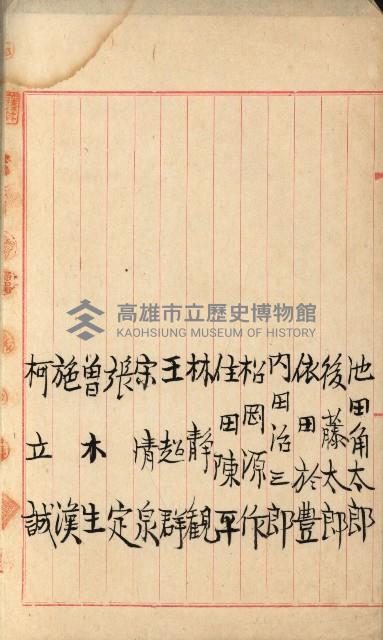 池田角太郎
後藤太郎
依田於豊
内田治三郎
松岡源作
住田陳平
林靜觀
王超群
宗清泉
張定
曽木生
施漢
柯立誠
高雄市立歷史博物館
KAOHSIUNG MUSEUM OF HISTORY